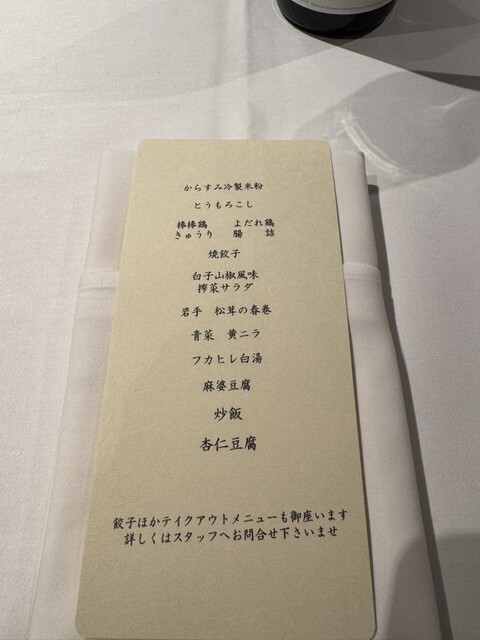 からすみ冷製米粉
とうもろこし
棒棒鶏　よだれ鶏
きゅうり　腸　詰
焼餃子
白子山椒風味
搾菜サラダ
岩手　松茸の春巻
青菜　黄ニラ
フカヒレ白湯
麻婆豆腐
炒飯
杏仁豆腐
餃子ほかテイクアウトメニューも御座います
詳しくはスタッフへお問合せ下さいませ